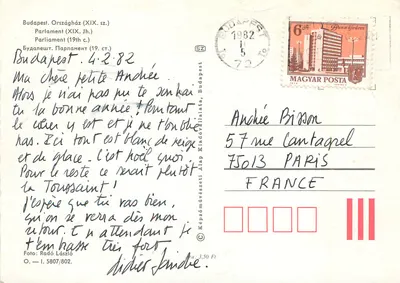 Budapest. Országház (XIX. sz.)
Parlament (XIX. Jh.)
Parliament (19th c.)
Будапешт. Парламент (19. ст.)
Budapest. 4.2.82
Ma chère petite Andrée
Alors je n'ai pas pu te souhai
ter la bonne année! Pourtant
le cœur y est et je ne t'oublie
pas. Ici tout est blanc de neige
et de glace. C'est noël quoi.
Pour le reste ce serait plutôt
la Toussaint!
J'espère que tu vas bien,
qu'on se verra dès mon
retour. En attendant je
t'embrasse très fort,
Didier
Foto: Radó László
O. — I. 5807/802.
© Képzőművészeti Alap Kiadóvállalata, Budapest
BUDAPEST
1982
72
6 Ft
MAGYAR POSTA
Andrée Bisson
57 rue Cantagrel
75013 PARIS
FRANCE